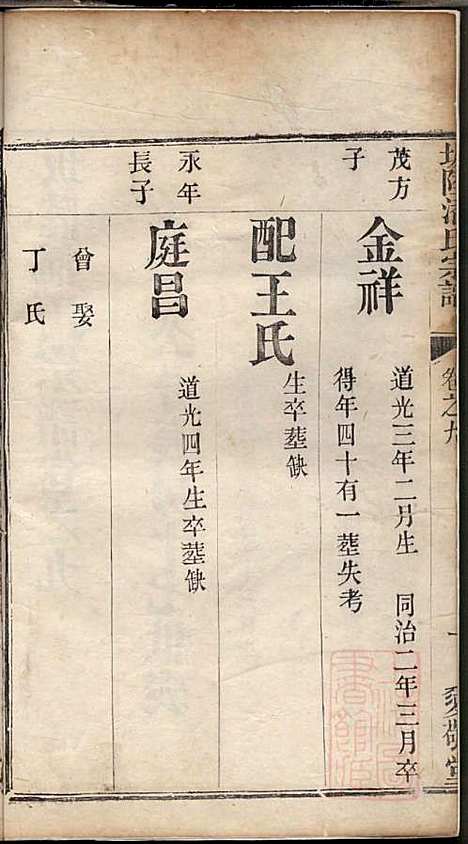 氏宗譜
卷之九
愛敬堂
茂方
子
金祥
道光三年二月生 同治二年三月卒
得年四十有一塟失考
配王氏
生卒塟缺
永年
長子
庭昌
道光四年生卒塟缺
曾娶
丁氏